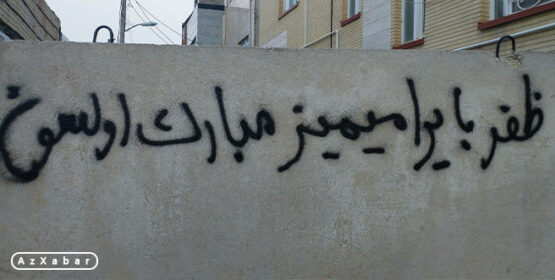 ظفر بایرامیمیز مبارک اولسون
AzXabar